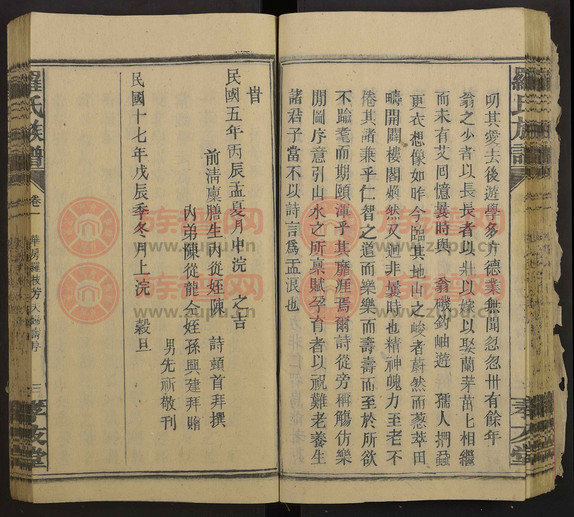 明其愛去後遊學多方德業無聞忽忽卅有餘年
翁之少者以長長者以壯以嫁以娶蘭芽茁上相繼
而未有艾囘憶曩時與 翁 鈎岫遊 孺人捫蝨
更衣想像如昨今臨其地山之峻者蔚然而葱萃田
疇開闢樓閣煥然又迥非曩時也精神魄力至老不
倦其諸兼乎仁智之道而樂樂而壽壽而至於所欲
不踰耄而期頤渾乎其無涯焉爾詩從旁稱觴仿樂
閒圖序意引山水之所稟賦孕育者以祝難老養生
諸君子當不以詩言爲孟浪也
旹
民國五年丙辰孟夏月中浣 之吉
前清廩膳生內從姪陳 詩頓首拜撰
內弟陳從龍仝姪孫興建拜賄
男先祈敬刊
民國十七年戊辰季冬月上浣 穀旦
羅氏族譜
卷一
三
羅氏族譜
家族譜网
www.zupu.cn